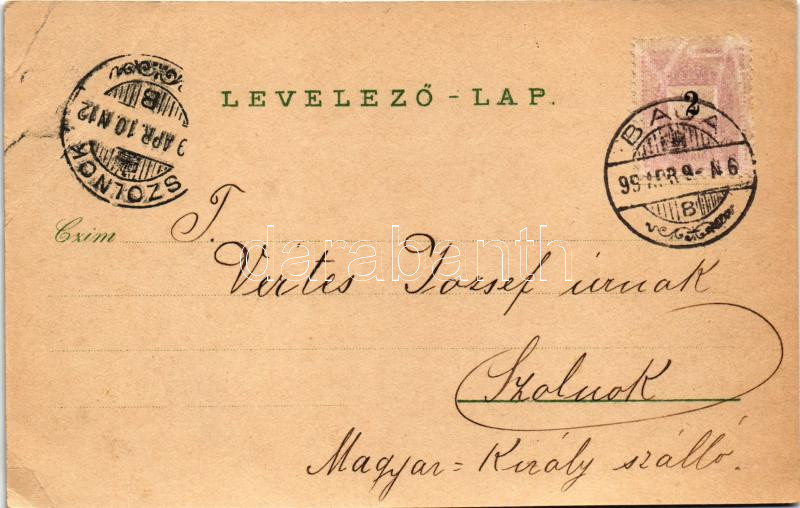 LEVELEZŐ-LAP.
2
BAJA
99 APR 9 N 6
B
SZOLNOK
9 APR. 10. N 12
B
Czim
T.
Vértes József úrnak
Szolnok
Magyar=Király szálló.
darabanth